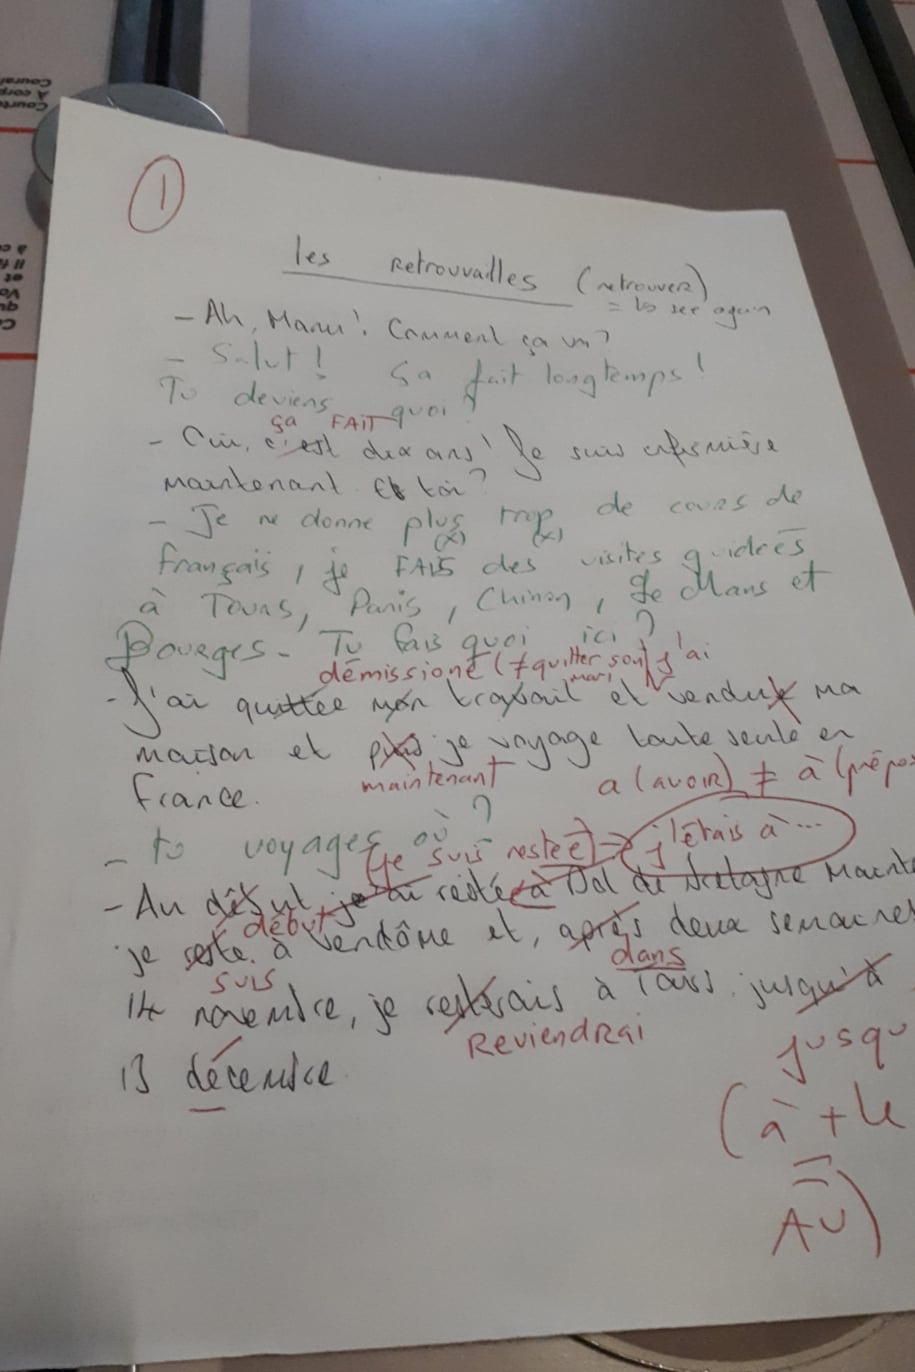 1
les Retrouvailles (retrouver)
= to see again
- Ah, Manu! Comment ça va?
- Salut! Ça fait longtemps!
Tu deviens quoi?
ça FAIT
- Oui, c'est dix ans! Je suis infirmière
maintenant. Et toi?
- Je ne donne plus trop de cours de
(x) (x)
français, je FAIS des visites guidées
à Tours, Paris, Chinon, Le Mans et
Bourges. Tu fais quoi ici?
démissioné (≠ quitter son mari) j'ai
- J'ai quittée mon travail et vendu ma
maison et puis je voyage toute seule en
maintenant
France.
a (avoir) ≠ à (prépos
- tu voyages où?
(je suis restée) => j'étais à ...
- Au début je ai resté à Dol de Bretagne Maint
début
je resté à Vendôme et, après deux semaines
suis dans
14 novembre, je resterais à Tours jusqu'à
Reviendrai
jusqu
13 décembre.
(à + le
=
AU)